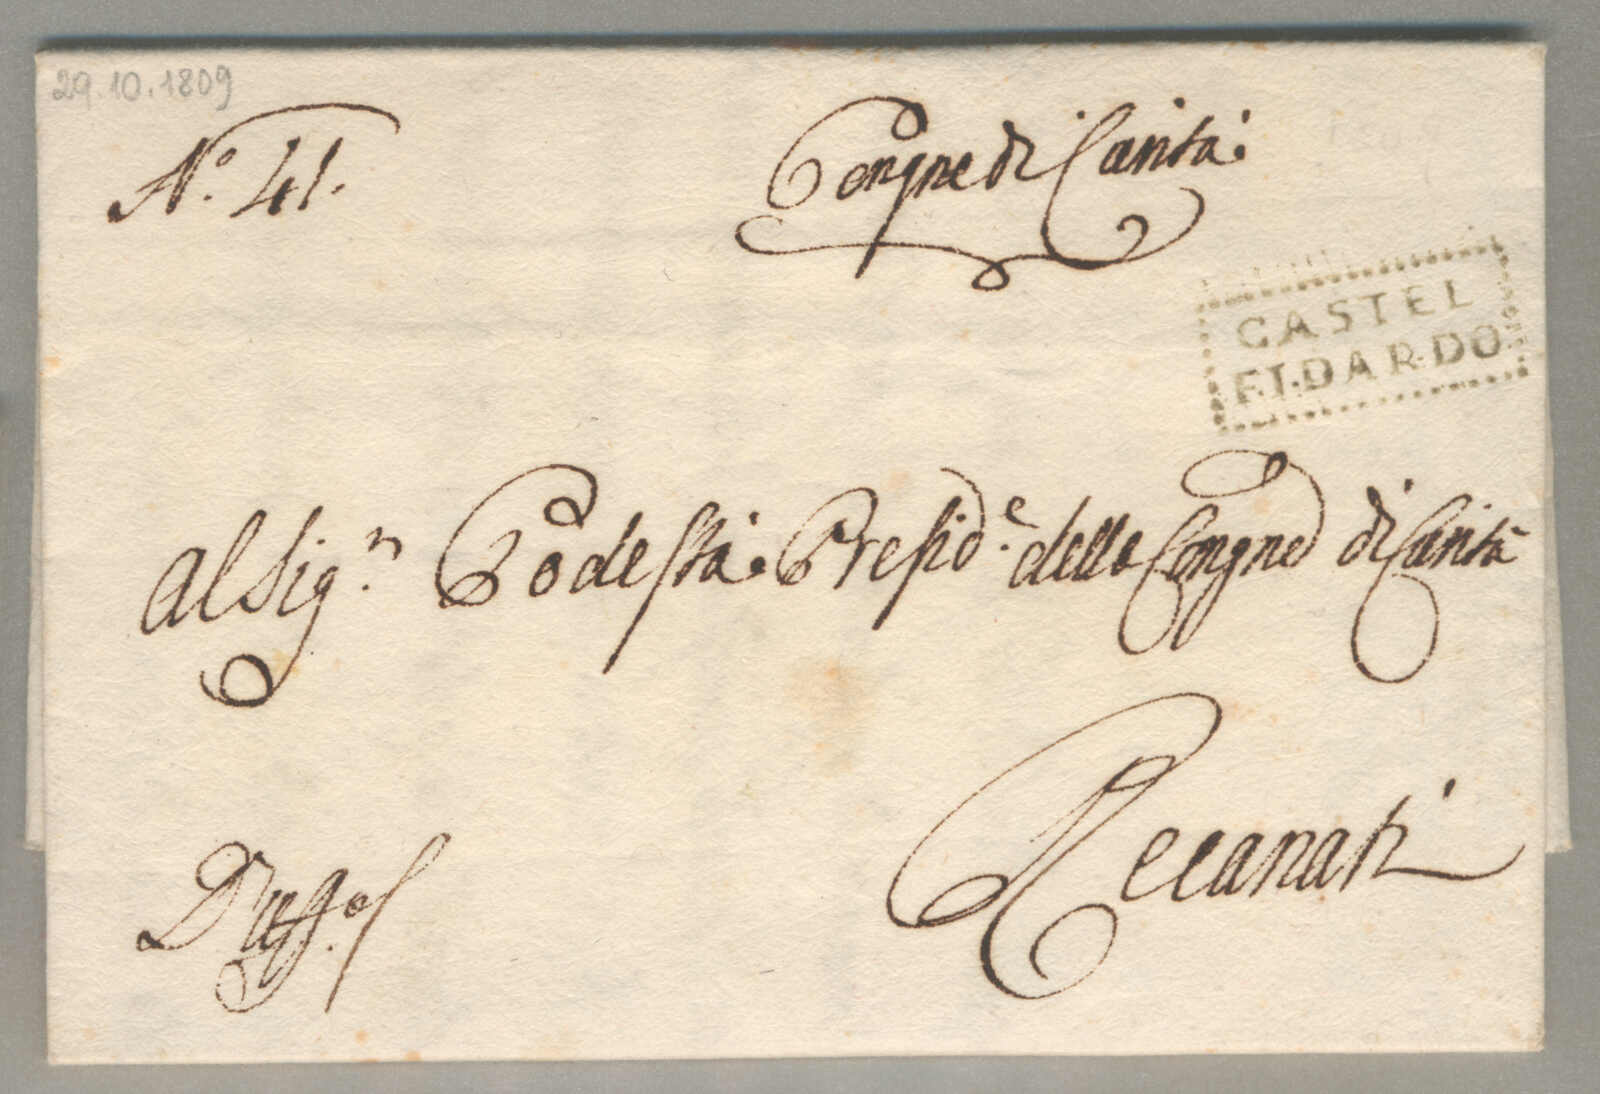 29.10.1809
N.o 41.
Congne di Carità.
CASTEL
FIDARDO
Al Sig.n Podestà. Presid.e della Congne di Carità
Recanati